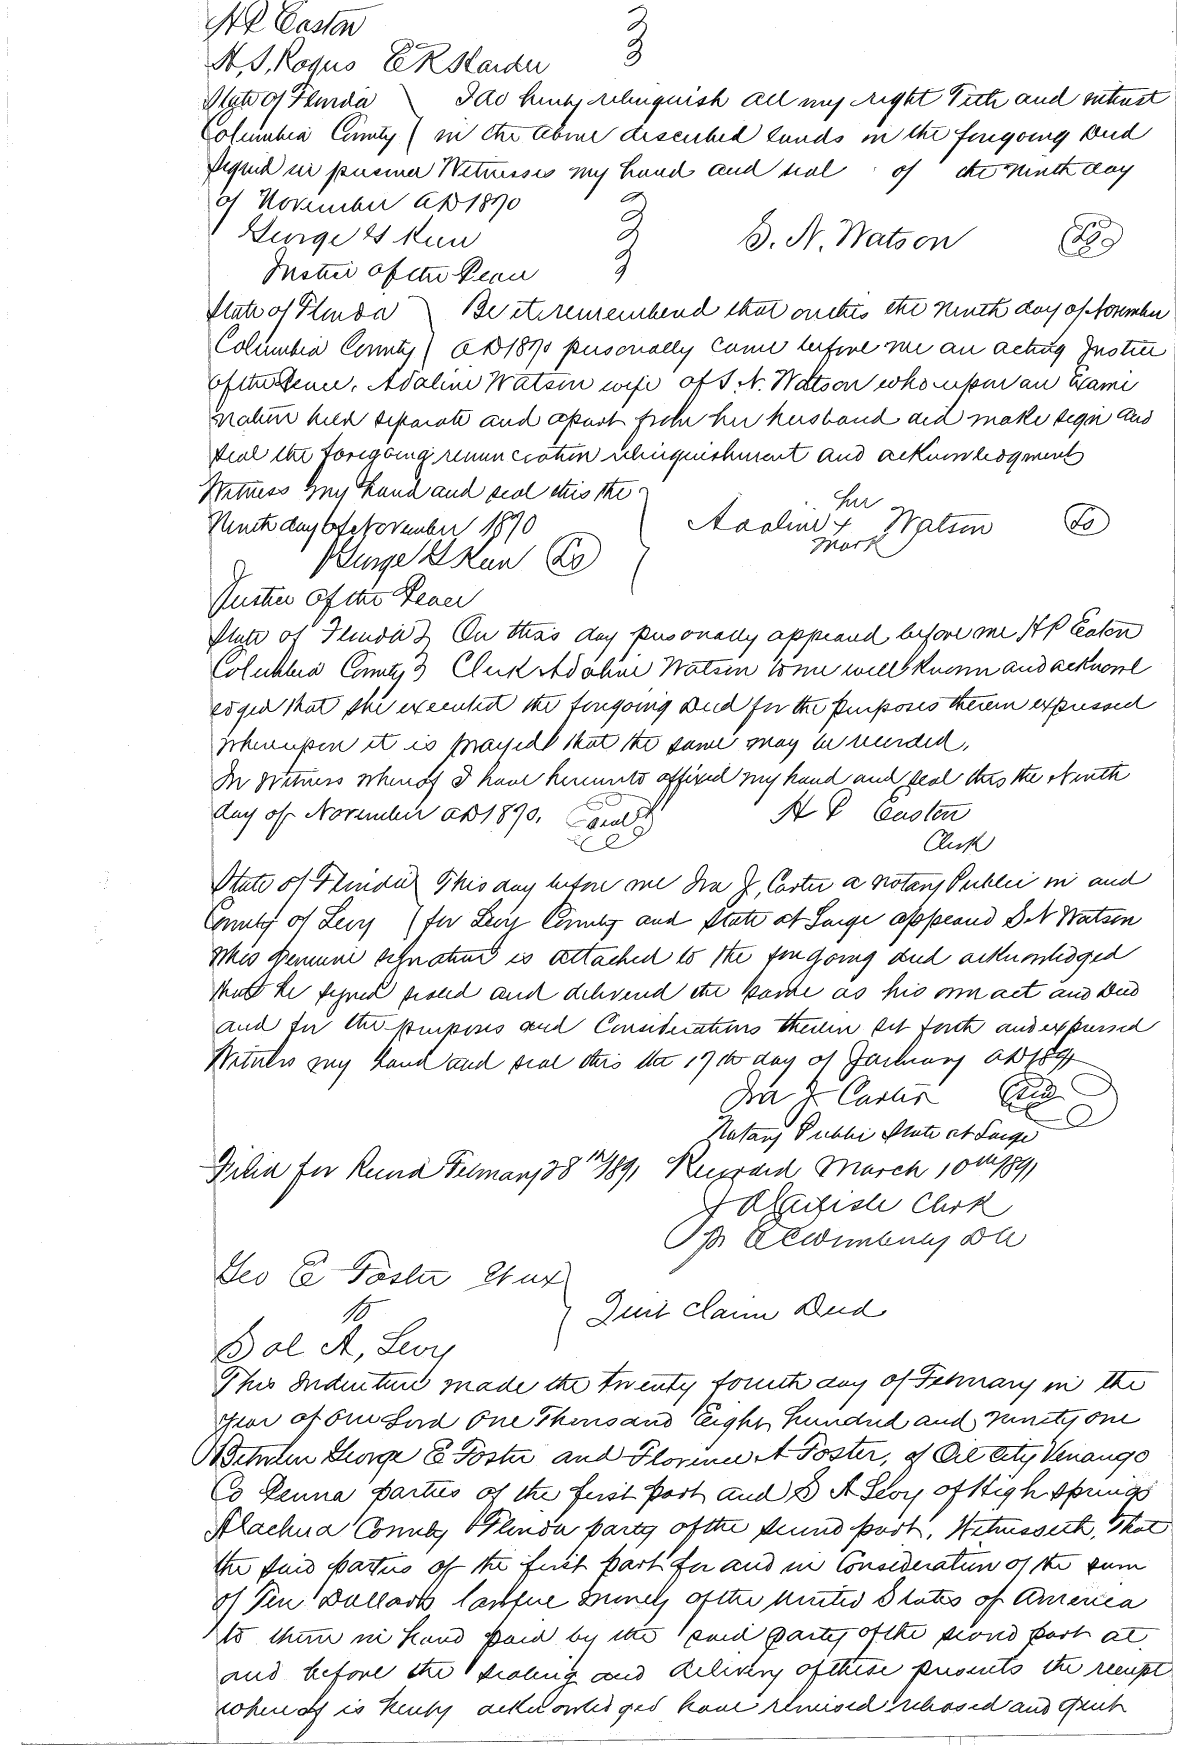 H P Easton
H. S. Rogus E R Harder
State of Florida I do hereby relinquish all my right Title and interest
Columbia County in the above described Lands in the foregoing Deed
signed in presence Witnesses my hand and seal of the ninth day
of November AD 1890
George G Keen S. N. Watson LS
Justice of the Peace
State of Florida Be it remembered that on this the Ninth day of November
Columbia County AD 1890 personally came before me an acting Justice
of the Peace, Adaline Watson wife of S. N. Watson who upon an Exami
nation held separate and apart from her husband did make sign and
seal the foregoing renunciation relinquishment and acknowledgment
Witness my hand and seal this the
Ninth day of November 1890
her
Adaline x Watson LS
mark
George G Keen LS
Justice of the Peace
State of Florida On this day personally appeared before me H P Easton
Columbia County Clerk Adaline Watson to me well known and acknowl
edged that she executed the foregoing Deed for the purposes therein expressed
whereupon it is prayed that the same may be recorded.
In Witness whereof I have hereunto affixed my hand and seal this the Ninth
day of November AD 1890. Seal H P Easton
Clerk
State of Florida This day before me Ira J. Carter a Notary Public in and
County of Levy for Levy County and State at Large appeard S N Watson
whos genuine signature is attached to the foregoing deed acknowledged
that he signed sealed and delivered the same as his own act and Deed
and for the purposes and Considerations therein set forth and expressed
Witness my hand and seal this the 17th day of January AD 1891
Ira J Carter Seal
Notary Public State at Large
Filed for Record February 28th 1891 Recorded March 10th 1891
Clerk
DC
Geo E Foster et ux
to Quit Claim Deed
Sol A, Levy
This Indenture made the twenty fourth day of February in the
year of our Lord One Thousand Eight hundred and ninety one
Between George E Foster and Florence A Foster, of Oil City Venango
Co Penna parties of the first part and S A Levy of High Springs
Alachua County Florida party of the second part, Witnesseth, That
the said parties of the first part for and in Consideration of the sum
of Ten Dollars lawful money of the United States of America
to them in hand paid by the said party of the second part at
and before the sealing and delivery of these presents the receipt
whereof is hereby acknowledged have remised released and quit